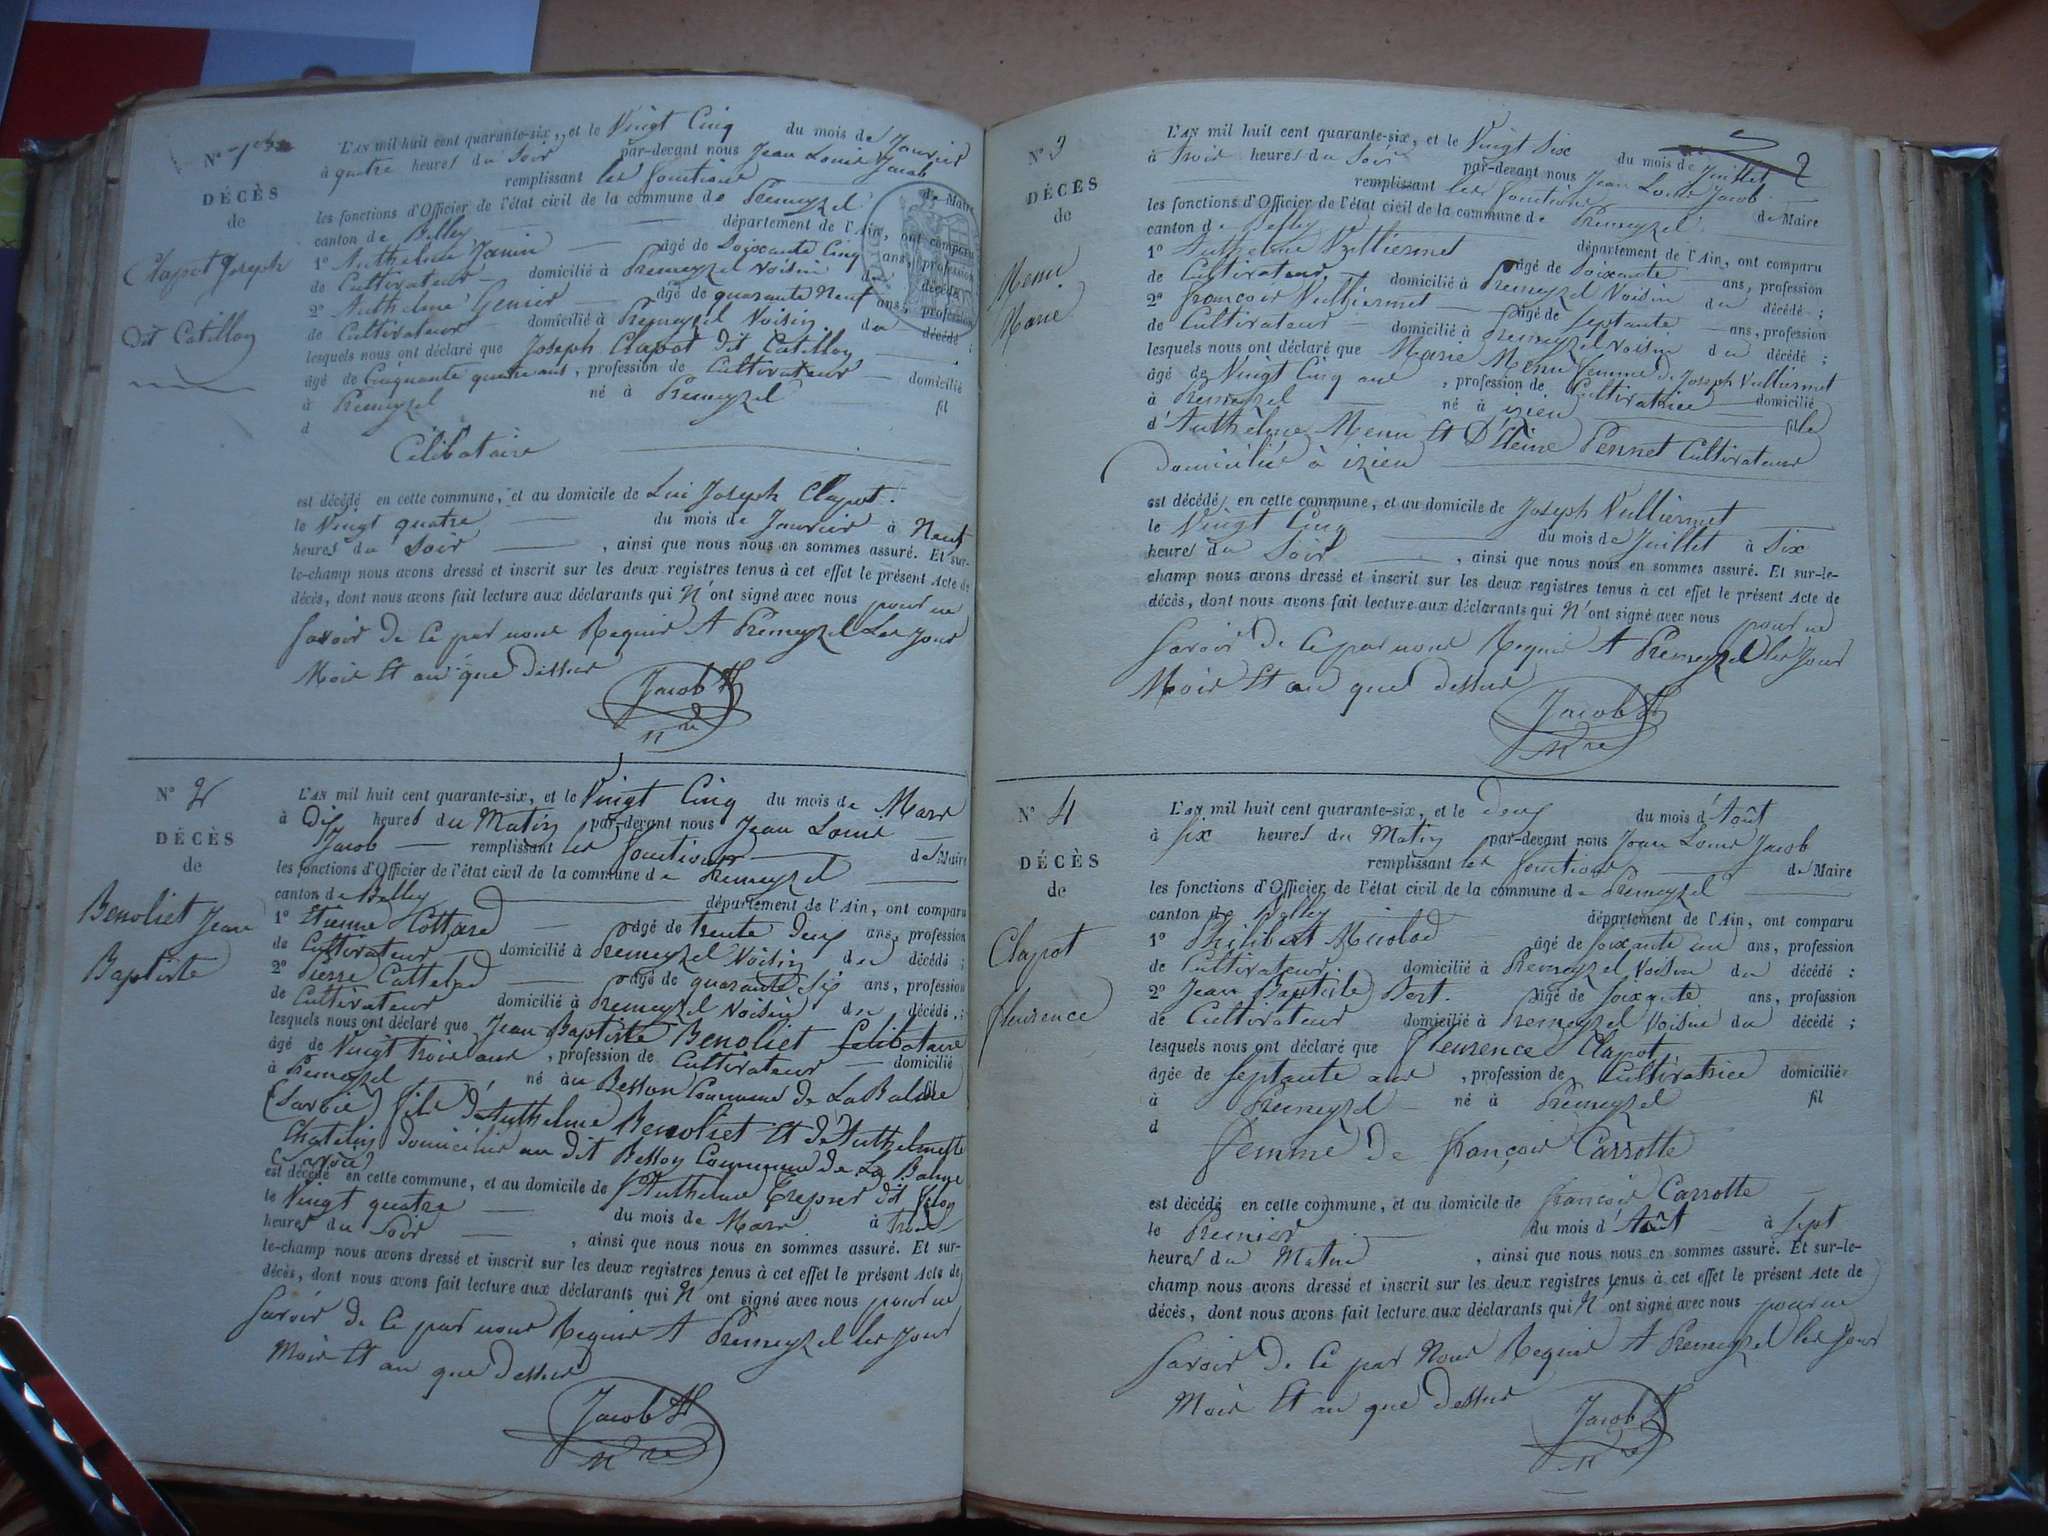 N° 1er
DÉCÈS
de
Clapot Joseph
dit Catillon
L'AN mil huit cent quarante-six, et le Vingt Cinq du mois de Janvier
à quatre heures du Soir par-devant nous Jean Louis Jacob
remplissant les fonctions de Maire
les fonctions d'Officier de l'état civil de la commune de Premeyzel
canton de Belley département de l'Ain, ont comparu
1° Anthelme Janin âgé de Soixante Cinq ans, profession
de Cultivateur domicilié à Premeyzel Voisin du décédé
2° Anthelme Genier âgé de quarante Neuf ans, profession
de Cultivateur domicilié à Premeyzel Voisin du décédé ;
lesquels nous ont déclaré que Joseph Clapot dit Catillon
âgé de Cinquante quatre ans, profession de Cultivateur domicilié
à Premeyzel né à Premeyzel fil
d
Célibataire
est décédé en cette commune, et au domicile de Lui Joseph Clapot.
le Vingt quatre du mois de Janvier à Neuf
heures du Soir, ainsi que nous nous en sommes assuré. Et sur-
le-champ nous avons dressé et inscrit sur les deux registres tenus à cet effet le présent Acte de
décès, dont nous avons fait lecture aux déclarants qui N'ont signé avec nous pour ne
Savoir de Ce par nous Requis A Premeyzel Les Jour
Mois Et an que dessus
Jacob
N° 2
DÉCÈS
de
Benoliet Jean
Baptiste
L'AN mil huit cent quarante-six, et le Vingt Cinq du mois de Mars
à Dix heures du Matin par-devant nous Jean Louis
Jacob remplissant les fonctions de Maire
les fonctions d'Officier de l'état civil de la commune de Premeyzel
canton de Belley département de l'Ain, ont comparu
1° Etienne Cottard âgé de trente Deux ans, profession
de Cultivateur domicilié à Premeyzel Voisin du décédé ;
2° Pierre Cattelad âgé de quarante Six ans, profession
de Cultivateur domicilié à Premeyzel Voisin du décédé ;
lesquels nous ont déclaré que Jean Baptiste Benoliet Celibataire
âgé de Vingt trois ans, profession de Cultivateur domicilié
à Premeyzel né au Besson Commune de La Balme
(Savoie) fils d'Anthelme Benoliet Et d'Anthelmette
Chatelin domicilier au dit Besson Commune de La Balme
est décédé en cette commune, et au domicile de Anthelme dit
le Vingt quatre du mois de Mars à trois
heures du Soir, ainsi que nous nous en sommes assuré. Et sur-
le-champ nous avons dressé et inscrit sur les deux registres tenus à cet effet le présent Acte de
décès, dont nous avons fait lecture aux déclarants qui N'ont signé avec nous pour ne
Savoir de Ce par nous Requis A Premeyzel les Jour
Mois Et an que dessus
Jacob
2
N° 3
DÉCÈS
de
Menu
Marie
L'AN mil huit cent quarante-six, et le Vingt Six du mois de Juillet
à trois heures du Soir par-devant nous Jean Louis Jacob
remplissant les fonctions de Maire
les fonctions d'Officier de l'état civil de la commune de Premeyzel
canton de Belley département de l'Ain, ont comparu
1° Anthelme Vulliermet âgé de Soixante ans, profession
de Cultivateur domicilié à Premeyzel Voisin du décédé ;
2° françois Vulliermet âgé de Septante ans, profession
de Cultivateur domicilié à Premeyzel Voisin du décédé ;
lesquels nous ont déclaré que Marie Menu femme de Joseph Vulliermet
âgé de Vingt Cinq ans, profession de Cultivatrice domicilié
à Premeyzel né à izieu fille
d'Anthelme Menu Et D' Pennet Cultivateur
Domiciliée à izieu
est décédé en cette commune, et au domicile de Joseph Vulliermet
le Vingt Cinq du mois de Juillet à Six
heures du Soir, ainsi que nous nous en sommes assuré. Et sur-le-
champ nous avons dressé et inscrit sur les deux registres tenus à cet effet le présent Acte de
décès, dont nous avons fait lecture aux déclarants qui N'ont signé avec nous pour ne
Savoir de Ce par nous Requis A Premeyzel les Jour
Mois Et an que dessus
Jacob
N° 4
DÉCÈS
de
Clapot
fleurence
L'AN mil huit cent quarante-six, et le deux du mois d'Août
à Six heures du Matin par-devant nous Jean Louis Jacob
remplissant les fonctions de Maire
les fonctions d'Officier de l'état civil de la commune de Premeyzel
canton de Belley département de l'Ain, ont comparu
1° Philibert âgé de Soixante un ans, profession
de Cultivateur domicilié à Premeyzel Voisin du décédé ;
2° Jean Baptiste Bort. âgé de Soixante ans, profession
de Cultivateur domicilié à Premeyzel Voisin du décédé ;
lesquels nous ont déclaré que fleurence Clapot
âgée de Septante ans, profession de Cultivatrice domicilié
à Premeyzel né à Premeyzel fil
d
femme de françois Carrotte
est décédé en cette commune, et au domicile de françois Carrotte
le Premier du mois d'Août à Sept
heures du Matin, ainsi que nous nous en sommes assuré. Et sur-le-
champ nous avons dressé et inscrit sur les deux registres tenus à cet effet le présent Acte de
décès, dont nous avons fait lecture aux déclarants qui N'ont signé avec nous pour ne
Savoir de Ce par Nous Requis A Premeyzel les Jour
Mois Et an que dessus
Jacob